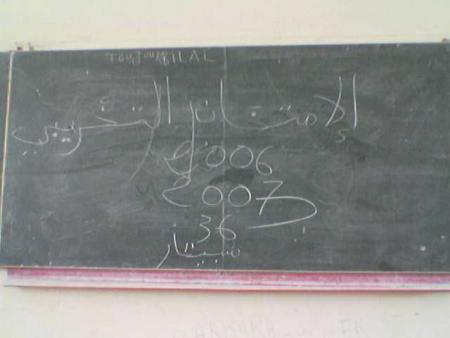 BILAL
الامتحان التجريبي
2006
2007
36
سبيتار